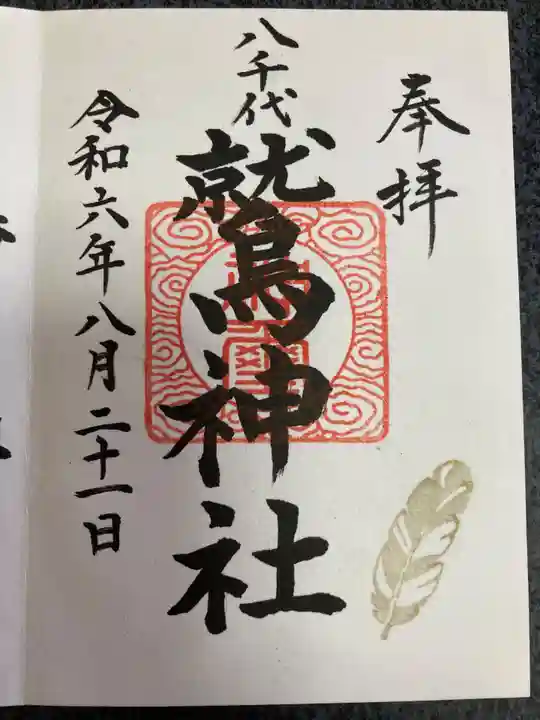 奉拝
八千代
鷲神社
令和六年八月二十一日